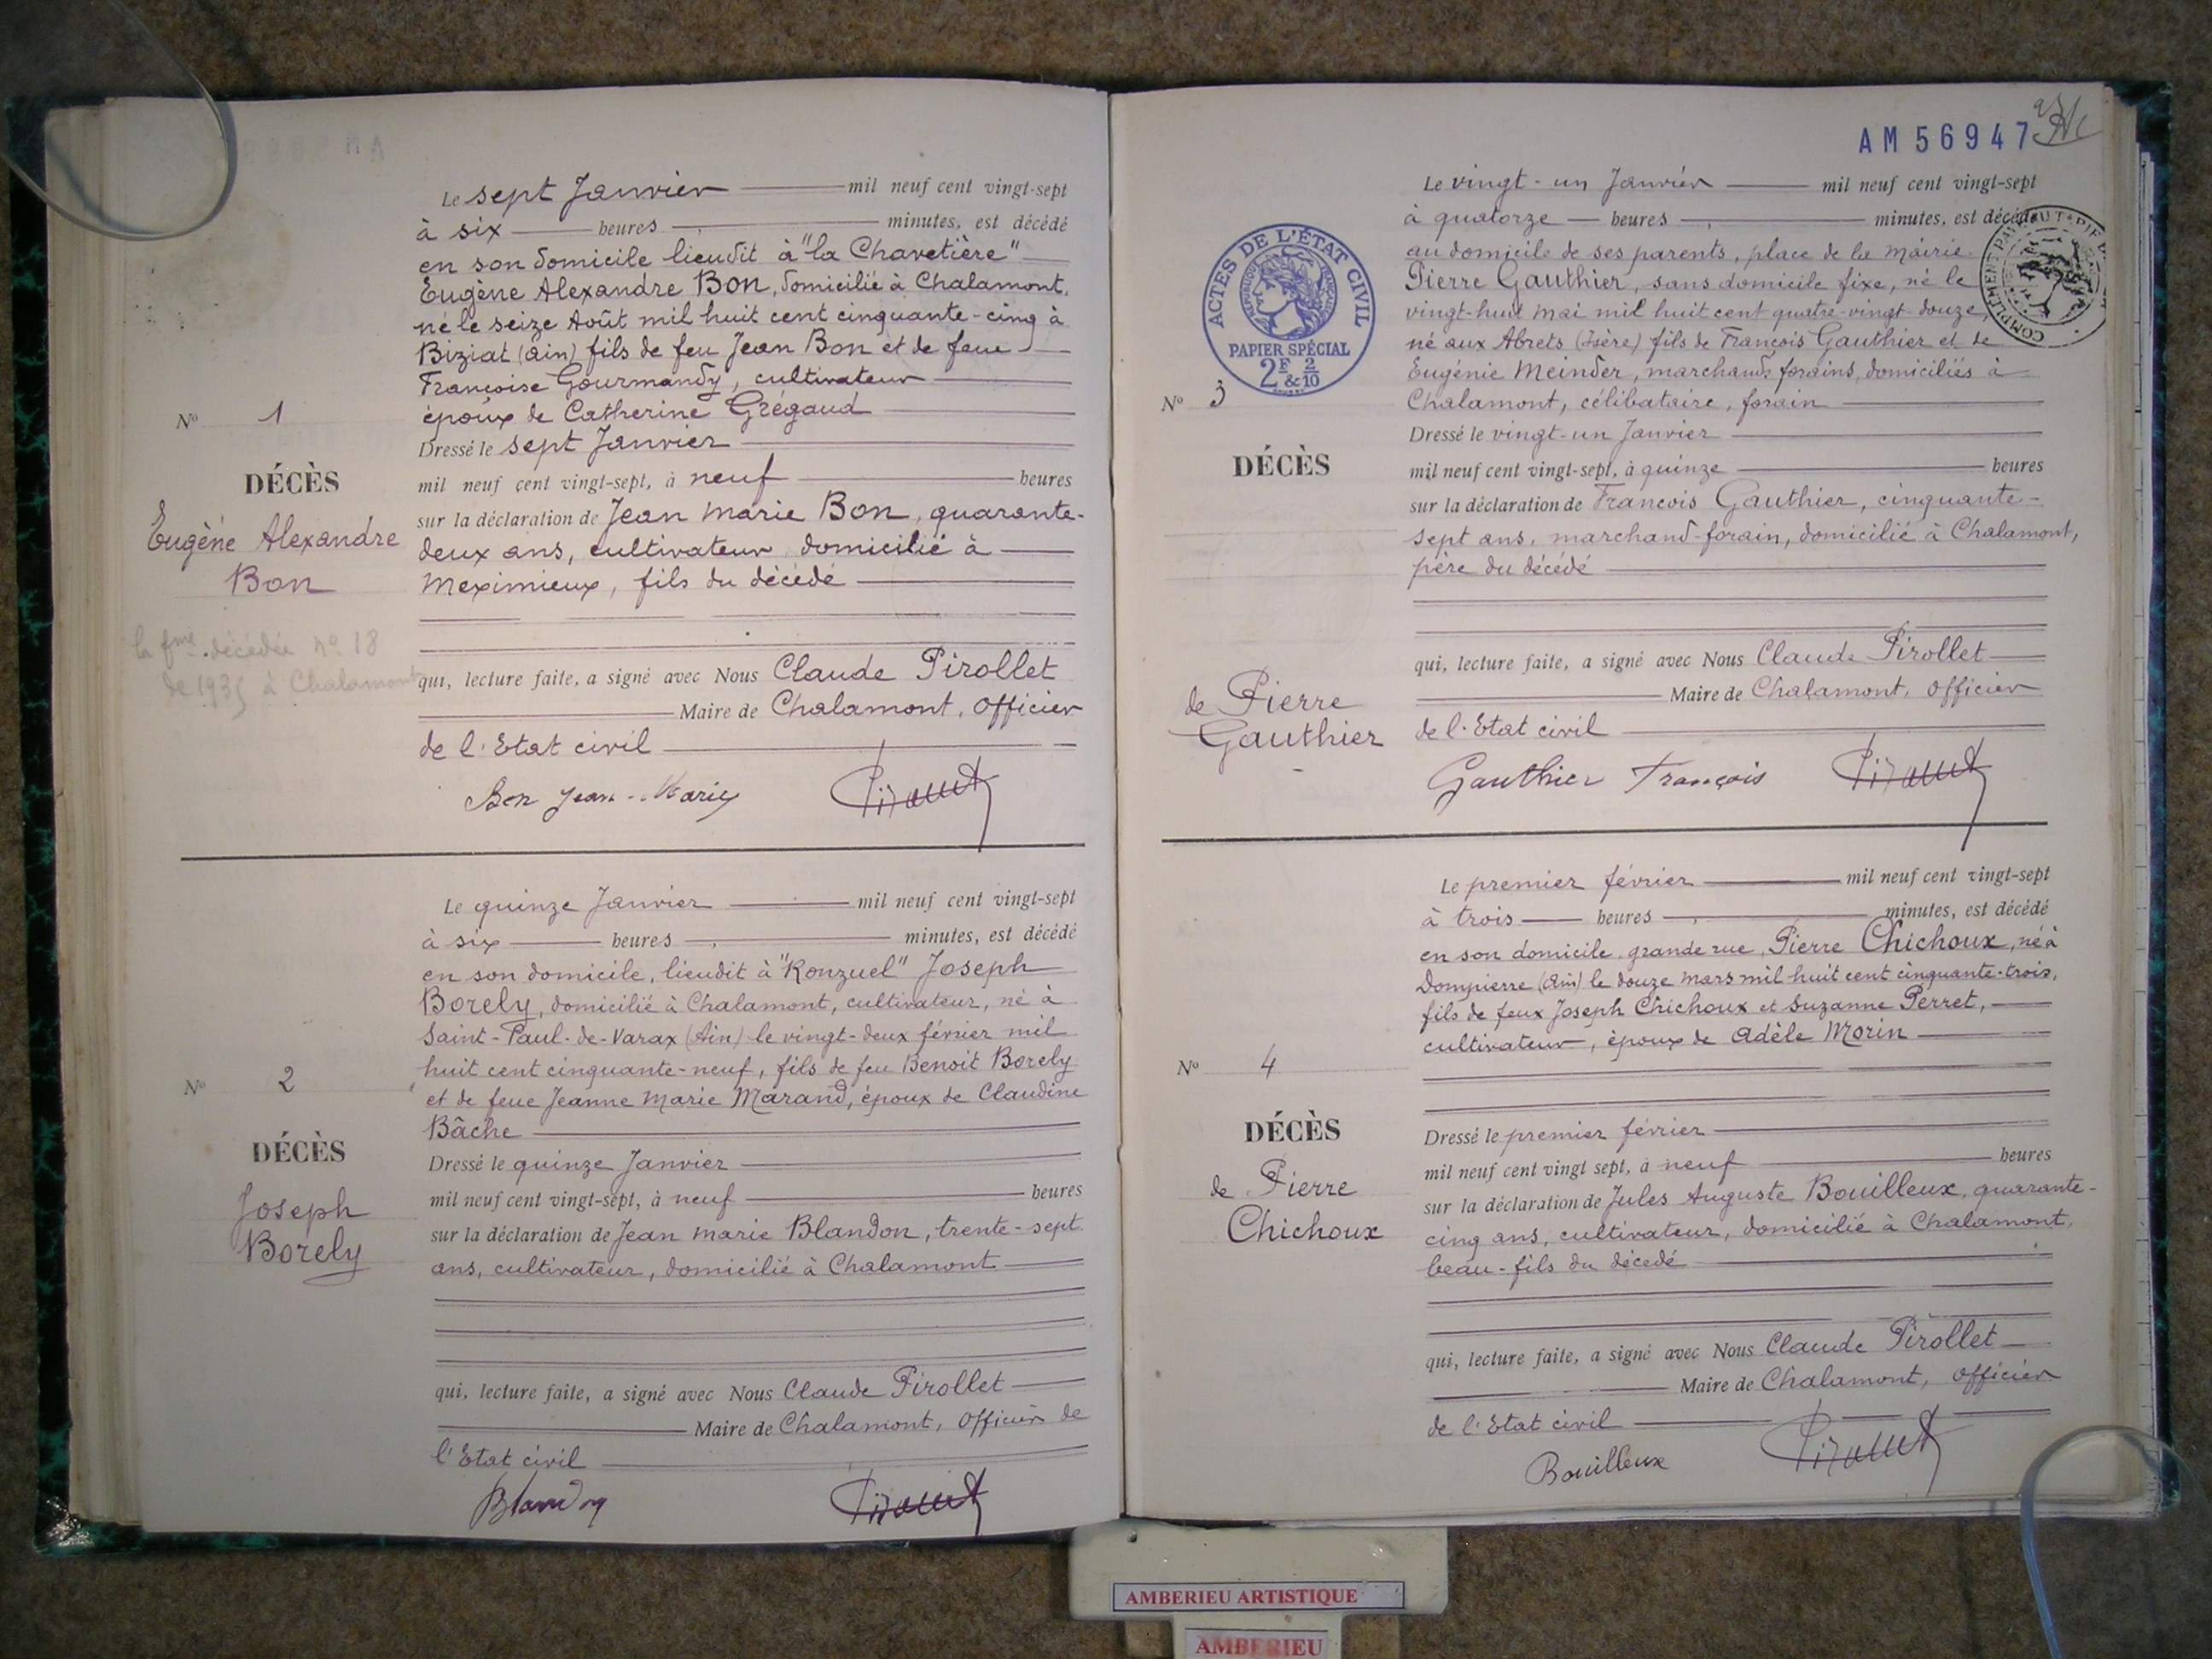 Le sept Janvier mil neuf cent vingt-sept
à six heures minutes, est décédé
en son domicile lieudit à "la Chavetière"
Eugène Alexandre Bon, domicilié à Chalamont,
né le seize Août mil huit cent cinquante-cinq à
Biziat (Ain) fils de feu Jean Bon et de feue
Françoise Gourmandy, cultivateur
époux de Catherine Grégaud
Nº 1
Dressé le sept Janvier
DÉCÈS
mil neuf cent vingt-sept, à neuf heures
Eugène Alexandre
Bon
sur la déclaration de Jean Marie Bon, quarante-
deux ans, cultivateur, domicilié à
Meximieux, fils du décédé
la fme décédée nº 18
de 1935 à Chalamont
qui, lecture faite, a signé avec Nous Claude Pirollet
Maire de Chalamont, Officier
de l'Etat civil
Bon Jean-Marie
Le quinze Janvier mil neuf cent vingt-sept
à six heures minutes, est décédé
en son domicile, lieudit à "Ronzuel" Joseph
Borely, domicilié à Chalamont, cultivateur, né à
Saint-Paul-de-Varax (Ain) le vingt-deux février mil
huit cent cinquante-neuf, fils de feu Benoit Borely
et de feue Jeanne Marie Marand, époux de Claudine
Bâche
Nº 2
DÉCÈS
Joseph
Borely
Dressé le quinze Janvier
mil neuf cent vingt-sept, à neuf heures
sur la déclaration de Jean Marie Blandon, trente-sept
ans, cultivateur, domicilié à Chalamont
qui, lecture faite, a signé avec Nous Claude Pirollet
Maire de Chalamont, Officier de
l'Etat civil
Blandon
AM 56947
Le vingt-un Janvier mil neuf cent vingt-sept
à quatorze heures minutes, est décédé
au domicile de ses parents, place de la Mairie
Pierre Gauthier, sans domicile fixe, né le
vingt-huit mai mil huit cent quatre-vingt-douze,
né aux Abrets (Isère) fils de François Gauthier et de
Eugénie Meinder, marchands forains, domiciliés à
Chalamont, célibataire, forain
ACTES DE L'ÉTAT CIVIL
RÉPUBLIQUE FRANÇAISE
PAPIER SPÉCIAL
2F & 2/10
Nº 3
DÉCÈS
de Pierre
Gauthier
Dressé le vingt-un Janvier
mil neuf cent vingt-sept, à quinze heures
sur la déclaration de François Gauthier, cinquante-
sept ans, marchand-forain, domicilié à Chalamont,
père du décédé
qui, lecture faite, a signé avec Nous Claude Pirollet
Maire de Chalamont, Officier
de l'Etat civil
Gauthier François
Le premier février mil neuf cent vingt-sept
à trois heures minutes, est décédé
en son domicile grande rue, Pierre Chichoux, né à
Dompierre (Ain) le douze mars mil huit cent cinquante-trois,
fils de feux Joseph Chichoux et Suzanne Perret,
cultivateur, époux de Adèle Morin
Nº 4
DÉCÈS
de Pierre
Chichoux
Dressé le premier février
mil neuf cent vingt sept, à neuf heures
sur la déclaration de Jules Auguste Bouilleux, quarante-
cinq ans, cultivateur, domicilié à Chalamont,
beau-fils du décédé
qui, lecture faite, a signé avec Nous Claude Pirollet
Maire de Chalamont, Officier
de l'Etat civil
Bouilleux
AMBERIEU ARTISTIQUE
AMBERIEU